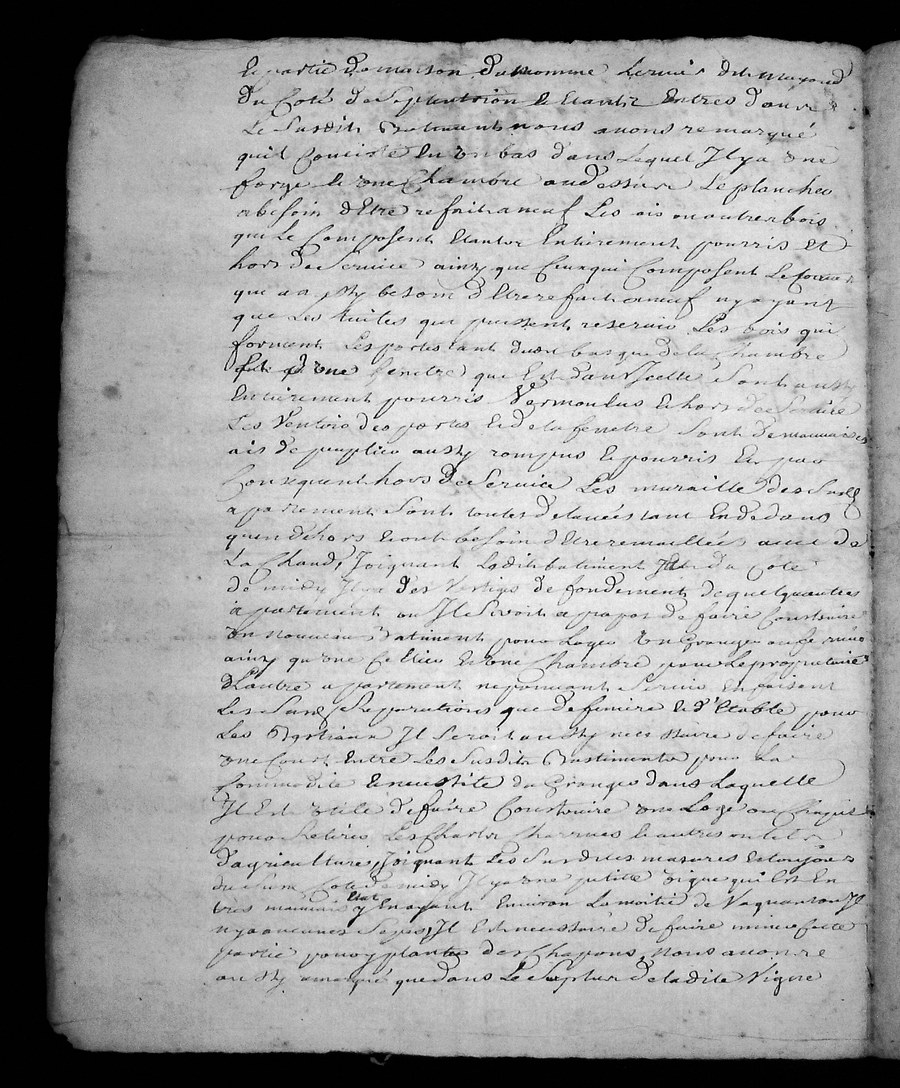 Et partie de maison du nomme
du Coté de Septentrion Et Etants Entres dans
Le Susdit Batiment nous auons remarqué
quil Conciste En un bas dans Lequel Il y a une
forge Et une Chambre au dessus Le plancher
a besoin dEtre refait a neuf Les ais ou autres bois
qui Le Composent Etants Entierement pourris Et
hors de Seruice ainsy que Ceux qui Composent Le
qui a aussy besoin dEtre refait a neuf ny ayant
que Les tuiles qui puissent reseruir Les bois qui
forment Les portes tant du dit bas que de la Chambre
une fenetre que Est dans Icelle Sont aussy
Entierement pourris Vermoulus Et hors de Seruice
Les Ventois des portes Et de la fenetre Sont de mauuais
ais de peuplier aussy rompus Et pourris Et par
Consequent hors de Seruice Les muraille des Susd
apartement Sont toutes delauées tant En dedans
quen dehors Et ont besoin dEtre remaillées auec de
La Chaud, Joignant Ledit batiment du Coté
de midy Il y a des Vestiges de fondement de quelqu autres
apartement ou Il Seroit a propos de faire Construire
un nouueau Batiment pour Loger un Granger
ainsy qu une Cellier Et une Chambre pour Le proprietaire
dLautre apartement ne pouuant Seruir En faisent
Les Susd Reparations que de feniere Et dEtable pour
Les Bestiaux Il Seroit aussy necessaire de faire
une Court Entre Les Susdits Bastiments pour La
Commodité Et necessité du Granger dans Laquelle
Il Est utile de faire Construire une Loge ou Chapit
pour Retirer Les Chars Charrues Et autres outils
d'agriculture, Joignant Les Susdites masures Et toujours
du Coté de midy Il y a une petite Vigne qui Est En
tres mauuais Etat y En ayant Enuiron La moitié de Il
ny a aucunes Seps, Il Est necessaire de faire miner Cette
partie pour y planter des Chapons, nous auons re
aussy marqué que dans Le Surplus de ladite Vigne